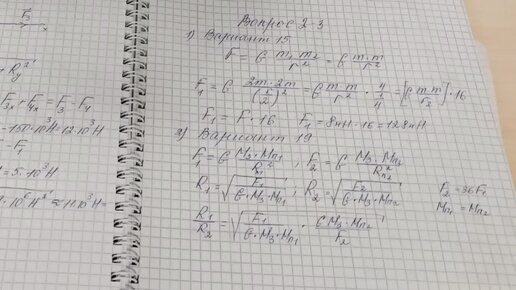 F₃
x
R_y²'
F₃ₓ + F₄ₓ = F₃ - F₄
-150·10³H = 12·10³H
- F₁
= 5·10³H
·10⁶H²' ≈ 11·10³H
Вопрос 2-3
1) Вариант 15
F = G m₁ m₂ / r² = G m·m / r²
F₁ = G 2m·2m / (r/2)² = G m·m / r² · 4/¼ = [G m·m / r²]·16
F₁ = F·16 F₁ = 8нН·16 = 128нН
2) Вариант 19
F₁ = G M₃·Mп₁ / R₁² ; F₂ = G M₃·Mп₂ / R₂²
R₁ = √(F₁ / G·M₃·Mп₁) ; R₂ = √(F₂ / G·M₃·Mп₂) F₂ = 36F₁
Mп₁ = Mп₂
R₁ / R₂ = √(F₁ / G·M₃·Mп₁ · G M₃·Mп₂ / F₂)